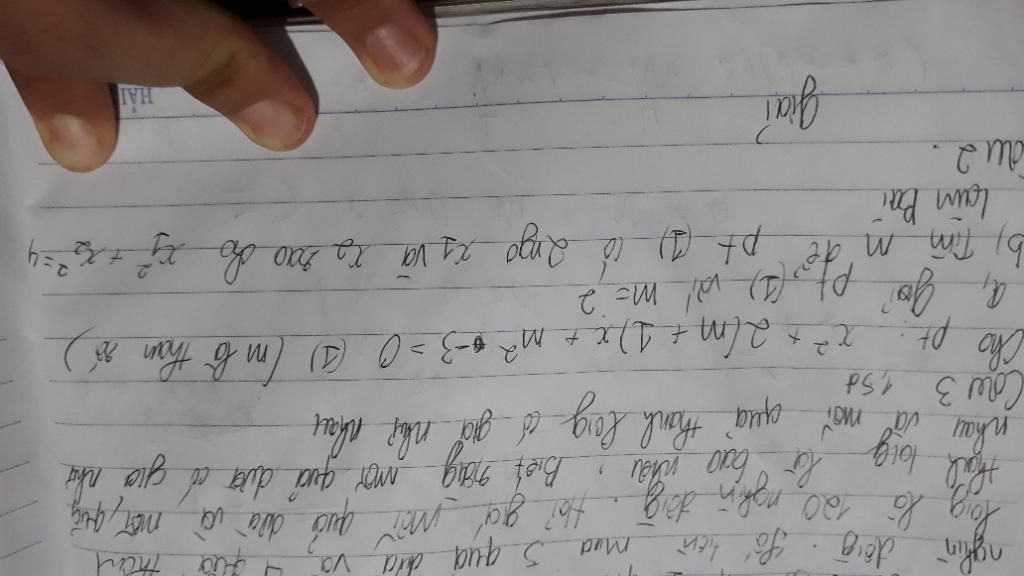 nghìn đồng. Số tiền mua 5 quả dừa và 4 quả thanh
long là 120 nghìn đồng. Hỏi giá mỗi quả dừa và mỗi quả
thanh long là bao nhiêu. Biết rằng mỗi quả dừa có giá như
nhau và mỗi quả thanh long có giá như nhau
Câu 3 1,5đ
Cho pt: x² + 2(m + 1)x + m² - 3 = 0 (1) (m là tham số)
a, giải pt (1) với m = 2
b) Tìm m để pt (1) có 2 ngo x₁ và x₂ sao cho x₁² + x₂² = 4
Làm Bài
Câu 2.
giải
HẢI